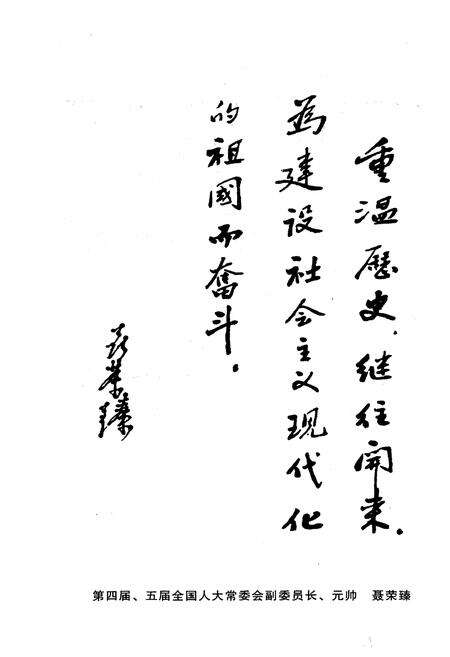 重温歷史.继往開来.
為建设社会主义現代化
的祖國而奮斗.
聂荣臻
第四届、五届全国人大常委会副委员长、元帅 聂荣臻